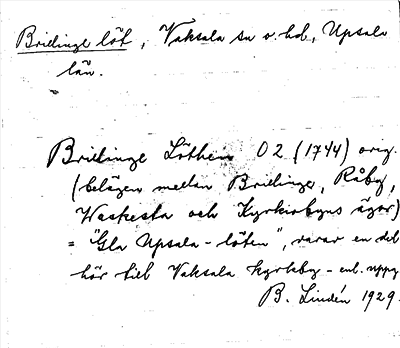 Brillinge löt, Vaksala sn o. hd, Upsala
län.
Brillinge Löthen O 2 (1744) orig.
(belägen mellan Brillinge, Råby,
Waxkesta och Kyrkiobyns ägor)
= "Gla Upsala-löten", varav en del
hör till Vaksala kyrkby - enl. uppg
B. Lindén 1929.